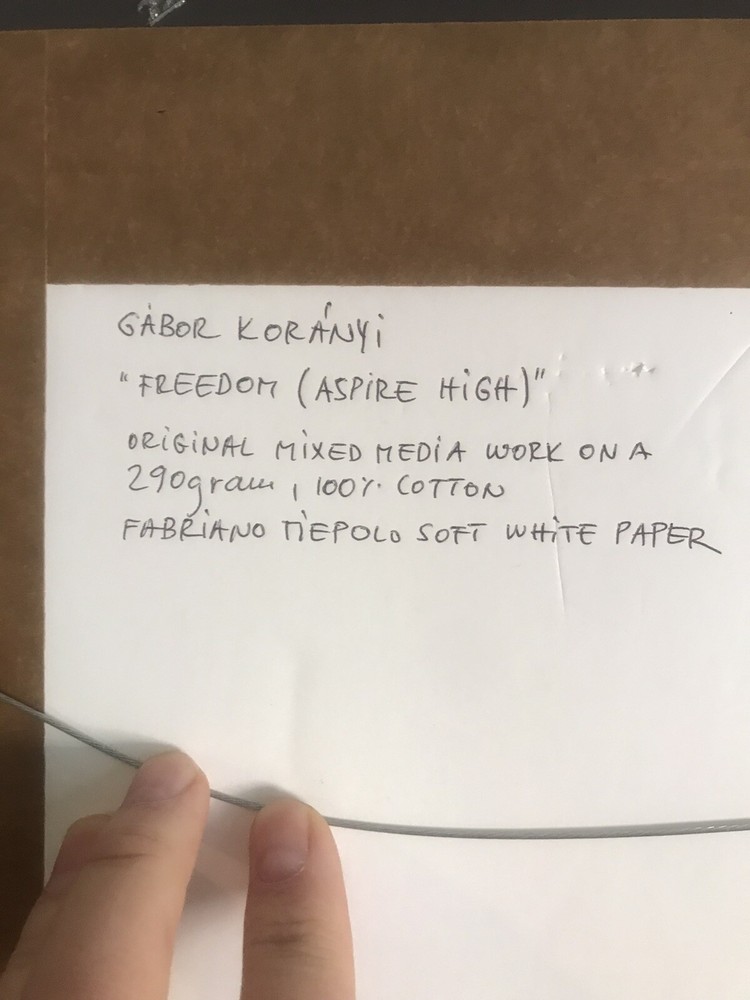 GÁBOR KORÁNYi
"FREEDOM (ASPiRE HiGH)"
ORiGiNAL MiXED MEDiA WORK ON A
290gram, 100% COTTON
FABRiANO TiEPOLO SOFT WHiTE PAPER